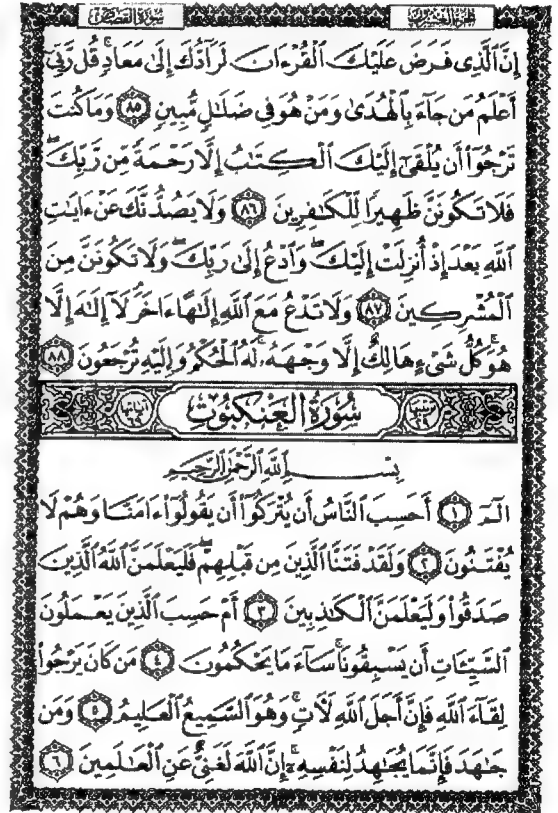 الجزء العشرون سورة القصص
إِنَّ ٱلَّذِى فَرَضَ عَلَيْكَ ٱلْقُرْءَانَ لَرَآدُّكَ إِلَىٰ مَعَادٍ ۚ قُل رَّبِّىٓ
أَعْلَمُ مَن جَآءَ بِٱلْهُدَىٰ وَمَنْ هُوَ فِى ضَلَٰلٍ مُّبِينٍ ٨٥ وَمَا كُنتَ
تَرْجُوٓا۟ أَن يُلْقَىٰٓ إِلَيْكَ ٱلْكِتَٰبُ إِلَّا رَحْمَةً مِّن رَّبِّكَ ۖ
فَلَا تَكُونَنَّ ظَهِيرًا لِّلْكَٰفِرِينَ ٨٦ وَلَا يَصُدُّنَّكَ عَنْ ءَايَٰتِ
ٱللَّهِ بَعْدَ إِذْ أُنزِلَتْ إِلَيْكَ ۖ وَٱدْعُ إِلَىٰ رَبِّكَ ۖ وَلَا تَكُونَنَّ مِنَ
ٱلْمُشْرِكِينَ ٨٧ وَلَا تَدْعُ مَعَ ٱللَّهِ إِلَٰهًا ءَاخَرَ ۘ لَآ إِلَٰهَ إِلَّا
هُوَ ۚ كُلُّ شَىْءٍ هَالِكٌ إِلَّا وَجْهَهُۥ ۚ لَهُ ٱلْحُكْمُ وَإِلَيْهِ تُرْجَعُونَ ٨٨
ترتيبها ٢٩ سُورَةُ العَنكَبُوتِ آياتها ٦٩
بِسْمِ ٱللَّهِ ٱلرَّحْمَٰنِ ٱلرَّحِيمِ
الٓمٓ ١ أَحَسِبَ ٱلنَّاسُ أَن يُتْرَكُوٓا۟ أَن يَقُولُوٓا۟ ءَامَنَّا وَهُمْ لَا
يُفْتَنُونَ ٢ وَلَقَدْ فَتَنَّا ٱلَّذِينَ مِن قَبْلِهِمْ ۖ فَلَيَعْلَمَنَّ ٱللَّهُ ٱلَّذِينَ
صَدَقُوا۟ وَلَيَعْلَمَنَّ ٱلْكَٰذِبِينَ ٣ أَمْ حَسِبَ ٱلَّذِينَ يَعْمَلُونَ
ٱلسَّيِّـَٔاتِ أَن يَسْبِقُونَا ۚ سَآءَ مَا يَحْكُمُونَ ٤ مَن كَانَ يَرْجُوا۟
لِقَآءَ ٱللَّهِ فَإِنَّ أَجَلَ ٱللَّهِ لَـَٔاتٍ ۚ وَهُوَ ٱلسَّمِيعُ ٱلْعَلِيمُ ٥ وَمَن
جَٰهَدَ فَإِنَّمَا يُجَٰهِدُ لِنَفْسِهِۦٓ ۚ إِنَّ ٱللَّهَ لَغَنِىٌّ عَنِ ٱلْعَٰلَمِينَ ٦